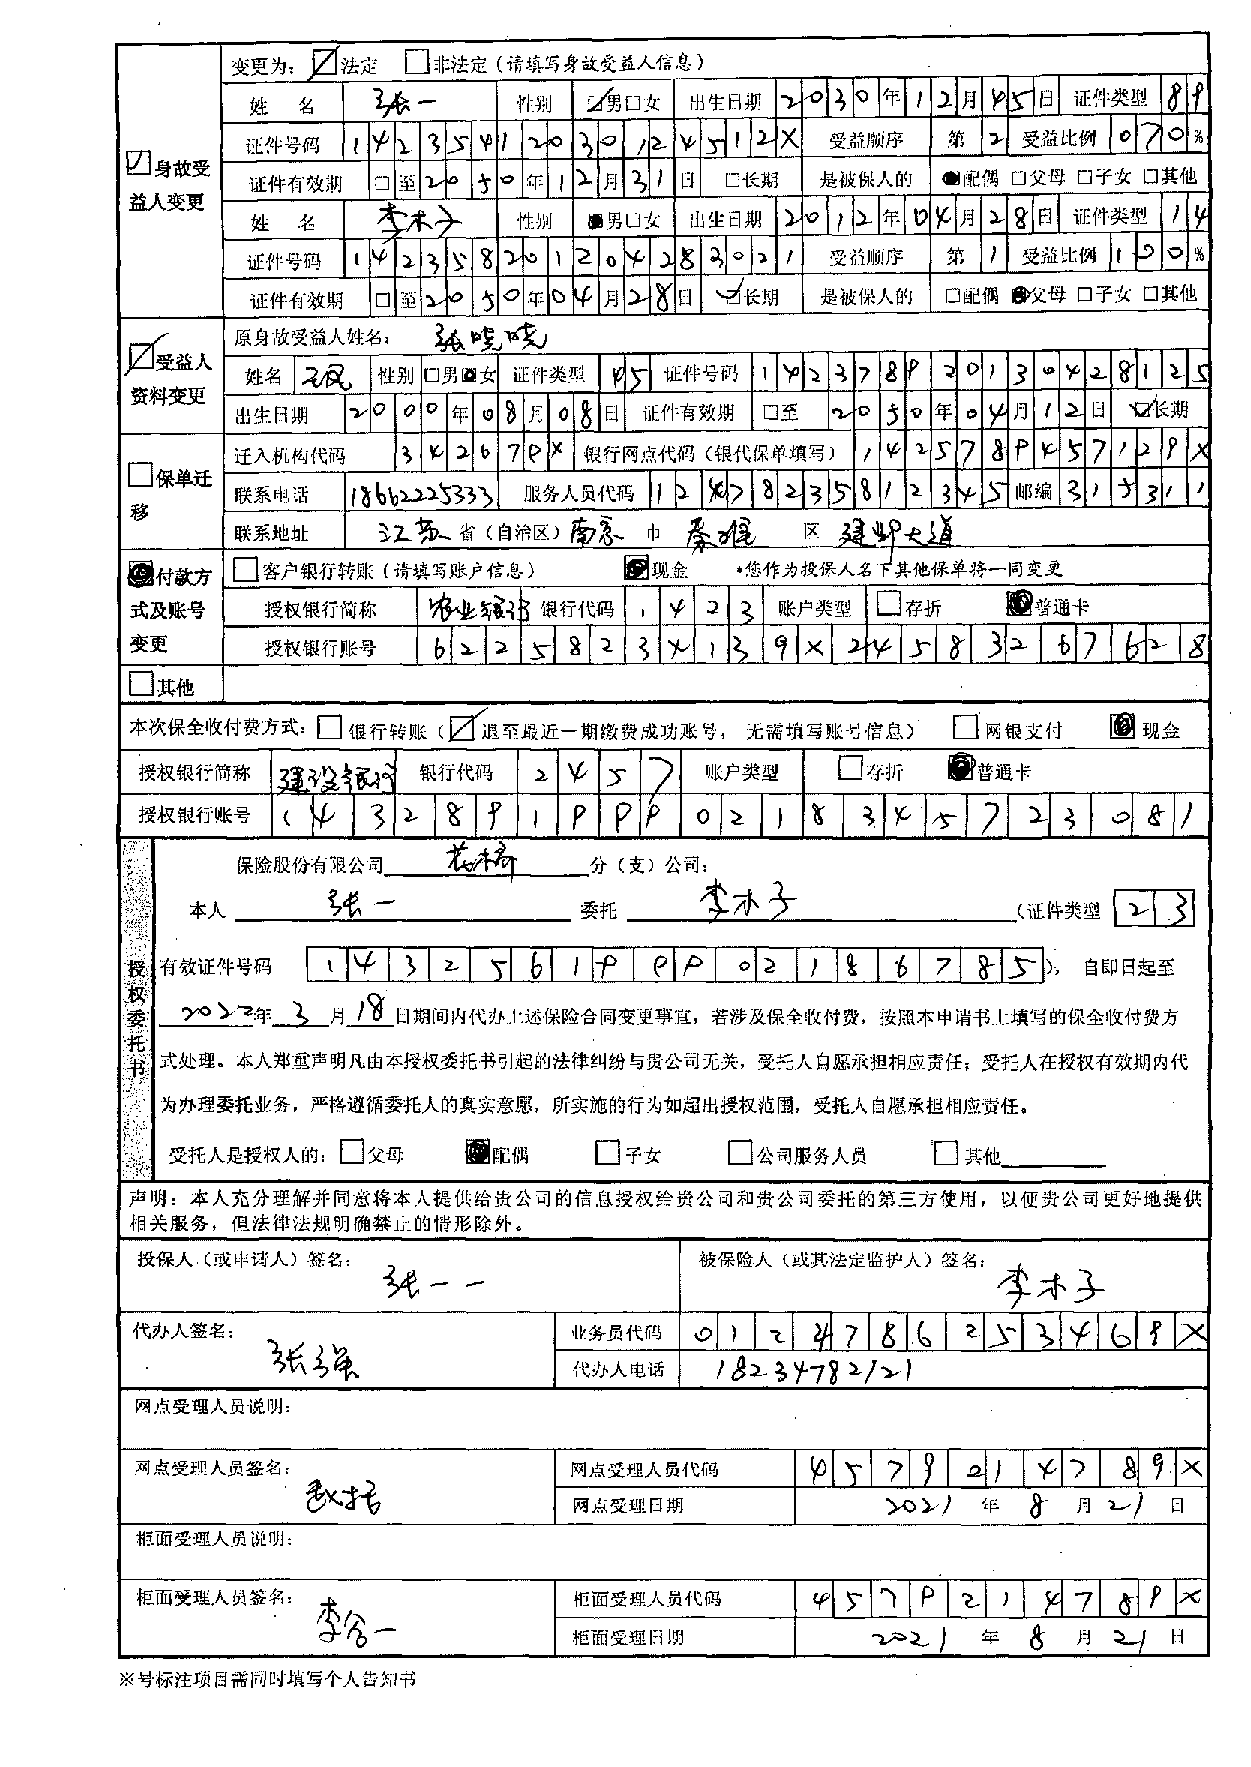 变更为：☑法定 □非法定（请填写身故受益人信息）
☑身故受益人变更
姓名 张一 性别 ☑男□女 出生日期 2030年12月45日 证件类型 89
证件号码 14235412030124512X 受益顺序 第2 受益比例 070%
证件有效期 □至2050年12月31日 □长期 是被保人的 ■配偶 □父母 □子女 □其他
姓名 李木子 性别 ■男□女 出生日期 2012年04月28日 证件类型 14
证件号码 142358201204283021 受益顺序 第1 受益比例 100%
证件有效期 □至2050年04月28日 ☑长期 是被保人的 □配偶 ■父母 □子女 □其他
☑受益人资料变更
原身故受益人姓名： 张晓晓
姓名 王凤 性别 □男■女 证件类型 45 证件号码 142378920130428125
出生日期 2000年08月08日 证件有效期 □至 2050年04月12日 ☑长期
□保单迁移
迁入机构代码 342679X 银行网点代码（银代保单填写） 1425789457129X
联系电话 18662225333 服务人员代码 12478235812345 邮编 315311
联系地址 江苏 省（自治区）南京 市 秦淮 区 建邺大道
■付款方式及账号变更
□客户银行转账（请填写账户信息） ■现金 *您作为投保人名下其他保单将一同变更
授权银行简称 农业银行 银行代码 1423 账户类型 □存折 ■普通卡
授权银行账号 62258234139X24583267628
□其他
本次保全收付费方式：□银行转账（☑退至最近一期缴费成功账号，无需填写账号信息） □网银支付 ■现金
授权银行简称 建设银行 银行代码 2457 账户类型 □存折 ■普通卡
授权银行账号 14328919990218345723081
授权委托书
保险股份有限公司 花桥 分（支）公司：
本人 张一 委托 李木子 （证件类型 23
有效证件号码 143256199902186785），自即日起至
2022年3月18日期间内代办上述保险合同变更事宜，若涉及保全收付费，按照本申请书上填写的保全收付费方
式处理。本人郑重声明凡由本授权委托书引起的法律纠纷与贵公司无关，受托人自愿承担相应责任；受托人在授权有效期内代
为办理委托业务，严格遵循委托人的真实意愿，所实施的行为如超出授权范围，受托人自愿承担相应责任。
受托人是授权人的：□父母 ■配偶 □子女 □公司服务人员 □其他
声明：本人充分理解并同意将本人提供给贵公司的信息授权给贵公司和贵公司委托的第三方使用，以便贵公司更好地提供
相关服务，但法律法规明确禁止的情形除外。
投保人（或申请人）签名： 张一一 被保险人（或其法定监护人）签名： 李木子
代办人签名： 张强 业务员代码 0124786253469X
代办人电话 18234782121
网点受理人员说明：
网点受理人员签名： 网点受理人员代码 4579214789X
网点受理日期 2021年8月21日
柜面受理人员说明：
柜面受理人员签名： 李谷一 柜面受理人员代码 4579214789X
柜面受理日期 2021年8月21日
※号标注项目需同时填写个人告知书